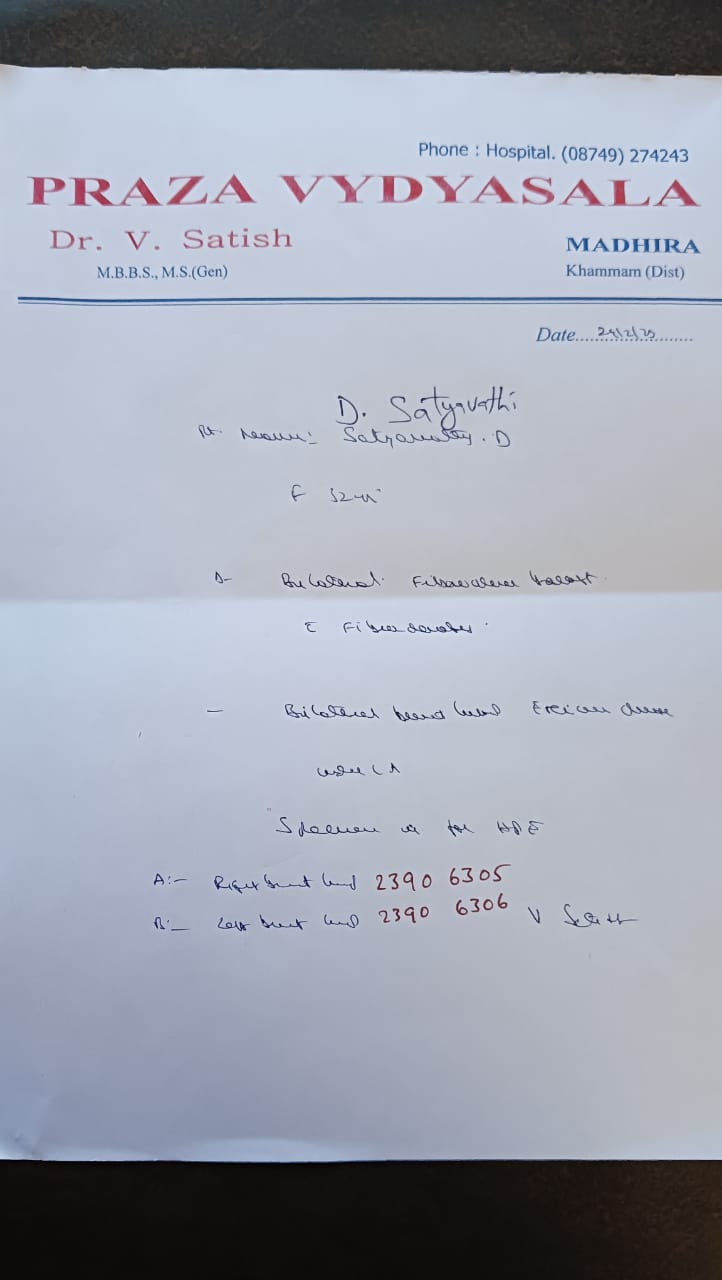 Phone : Hospital. (08749) 274243
PRAZA VYDYASALA
Dr. V. Satish
MADHIRA
M.B.B.S., M.S.(Gen)
Khammam (Dist)
Date
D. Satyavathi
Pt. Name:- Satyavathy. D
F 52 yr
Δ- Bilateral
c̄
- Bilateral breast lump Excision done
under LA
Specimen is for HPE
A:- Right breast lump 2390 6305
B:- Left breast lump 2390 6306 V Satish